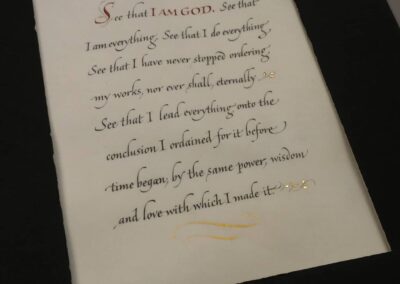 See that I AM GOD. See that
I am everything. See that I do everything.
See that I have never stopped ordering
my works, nor ever shall, eternally.
See that I lead everything onto the
conclusion I ordained for it before
time began, by the same power, wisdom
and love with which I made it.